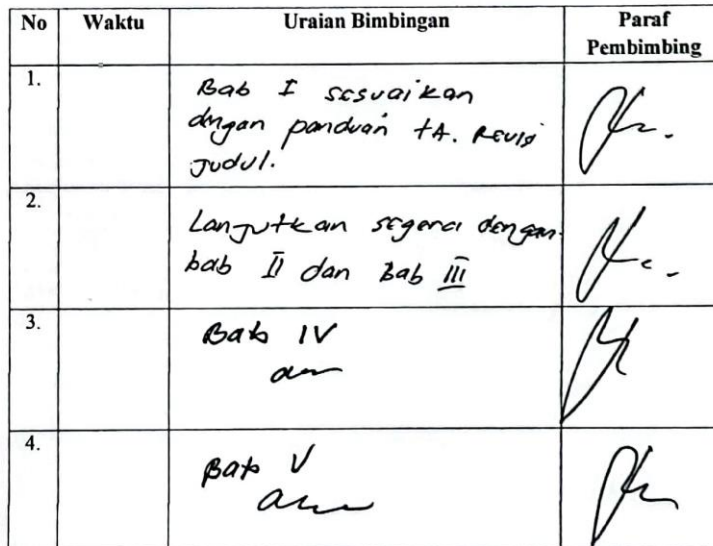 No Waktu Uraian Bimbingan Paraf
Pembimbing
1. Bab I sesuaikan
dengan panduan TA. Revisi
Judul.
2. Lanjutkan segera dengan
bab II dan Bab III
3. Bab IV
4. Bab V